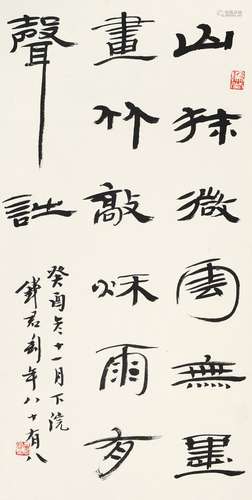 山抹微雲無墨
畫竹敲秋雨有
聲詩
癸酉冬十一月下浣
錢君匋年八十有八